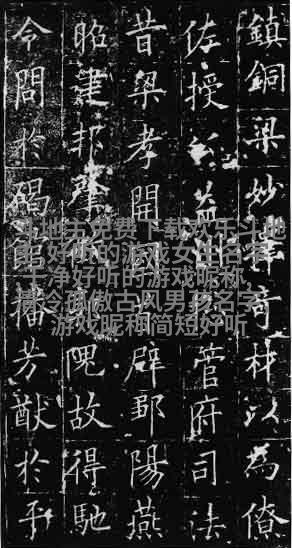 鎮銅梁妙擇奇材以為僚
佐授公益州管府司法
昔梁孝開國首辟鄒陽燕
昭建邦肇隗故得馳
令問於碣館播芳猷於平
地主免费下载欢乐斗地
主,好听的游戏女生名字
干净好听的游戏昵称,
清冷孤傲古风男孩名字,
游戏昵称简短好听